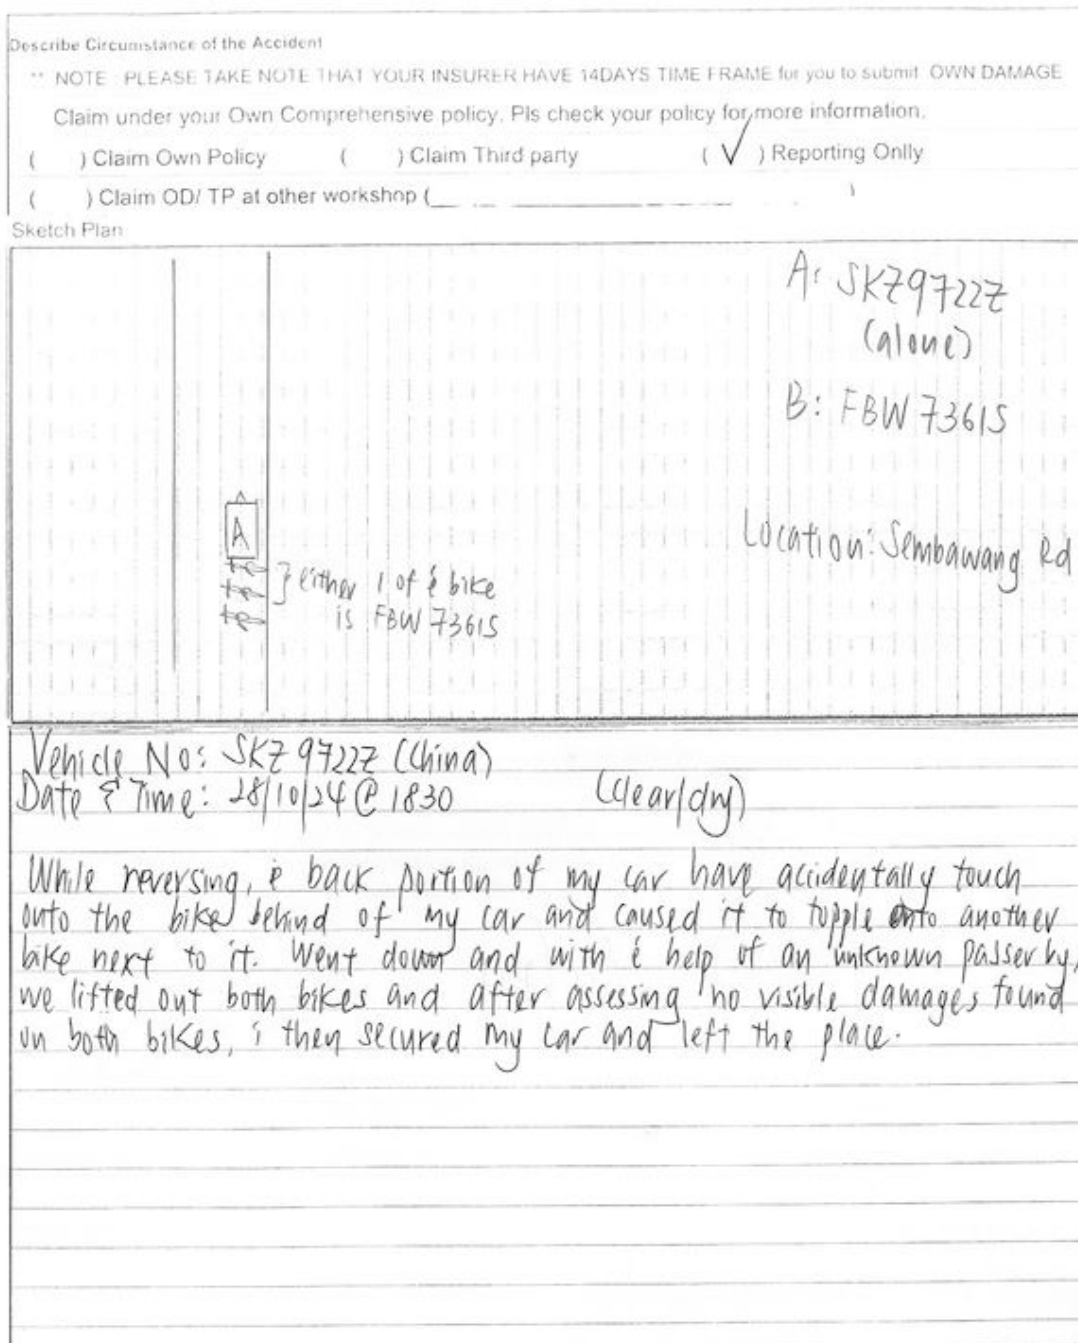 Describe Circumstance of the Accident
** NOTE : PLEASE TAKE NOTE THAT YOUR INSURER HAVE 14DAYS TIME FRAME for you to submit OWN DAMAGE
Claim under your Own Comprehensive policy. Pls check your policy for more information.
( ) Claim Own Policy ( ) Claim Third party ( ✓ ) Reporting Onlly
( ) Claim OD/ TP at other workshop ( )
Sketch Plan
A: SKZ9722Z
(alone)
B: FBW 7361S
Location: Sembawang Rd
A
} either 1 of & bike
is FBW 7361S
Vehicle No: SKZ 9722Z (China)
Date & Time: 28/10/24 @ 1830 (Clear/dry)
While reversing, & back portion of my car have accidentally touch
onto the bike behind of my car and caused it to topple onto another
bike next to it. Went down and with & help of an unknown passerby,
we lifted out both bikes and after assessing no visible damages found
on both bikes, i then secured my car and left the place.